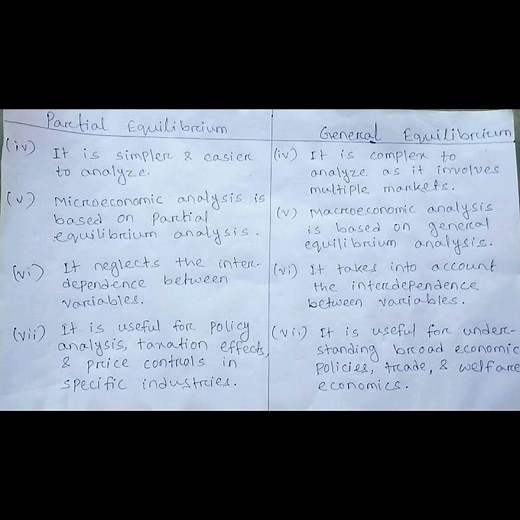 Partial Equilibrium
(iv) It is simpler & easier
to analyze.
(v) Microeconomic analysis is
based on Partial
equilibrium analysis.
(vi) It neglects the inter-
dependence between
variables.
(vii) It is useful for policy
analysis, taxation effects,
& price controls in
specific industries.
General Equilibrium
(iv) It is complex to
analyze as it involves
multiple markets.
(v) Macroeconomic analysis
is based on general
equilibrium analysis.
(vi) It takes into account
the interdependence
between variables.
(vii) It is useful for under-
standing broad economic
policies, trade, & welfare
economics.